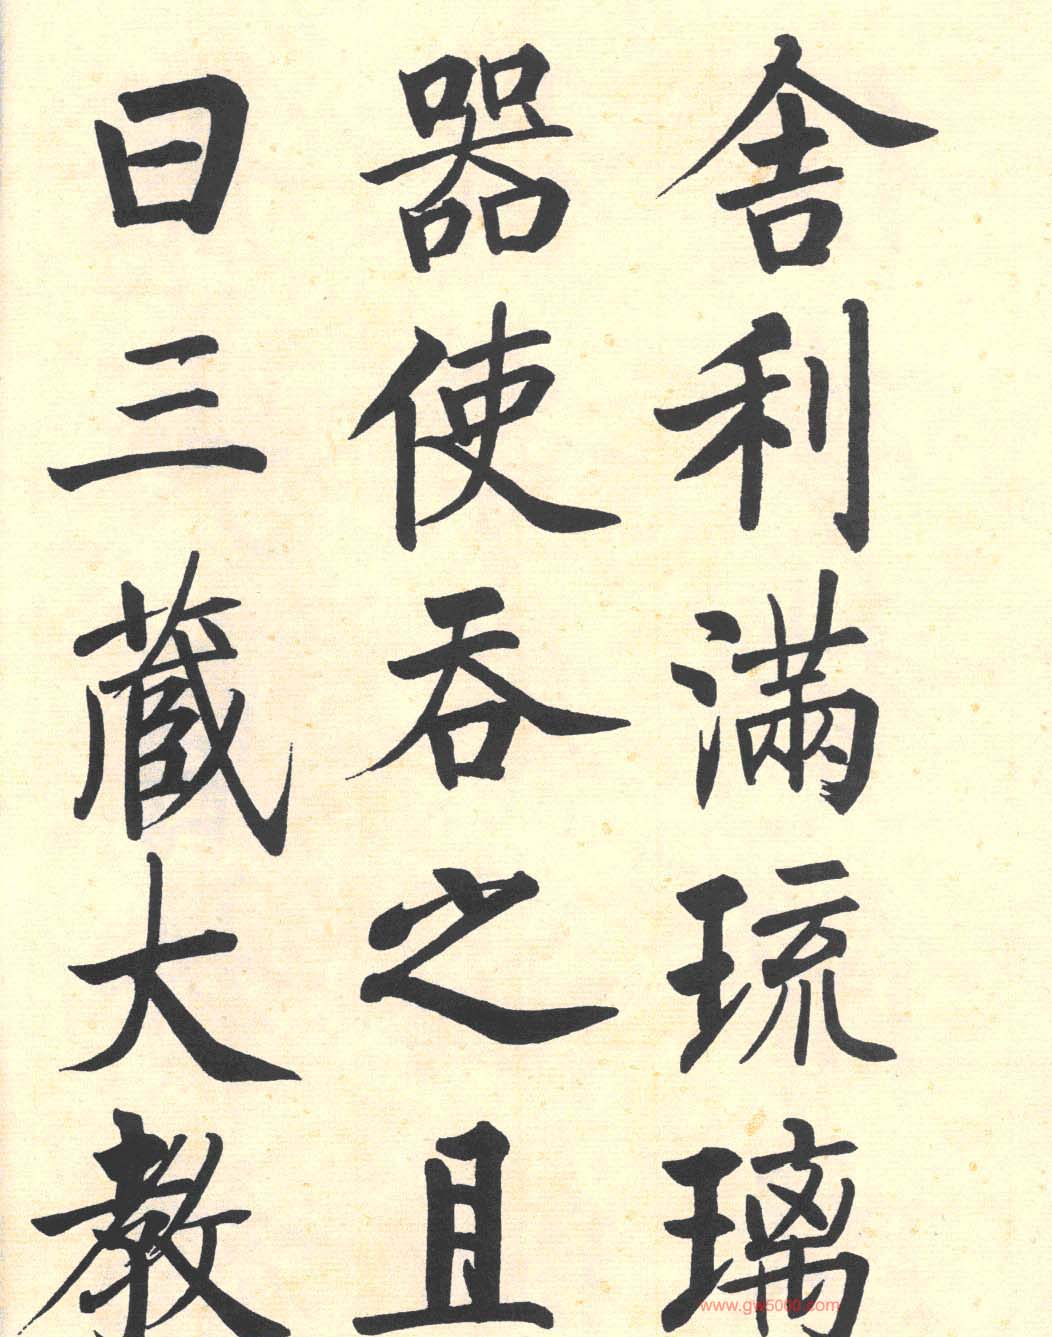 舍利滿琉璃
器使吞之且
曰三藏大教
www.gw5000.com